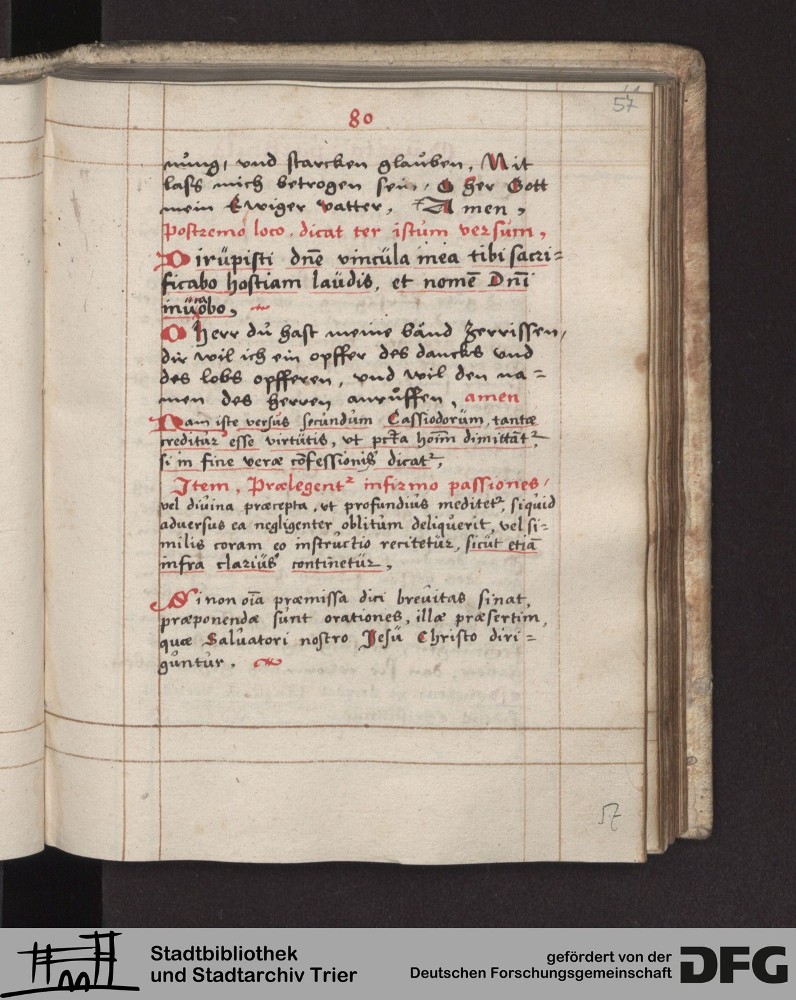 57
80
nung, vnd starcken glauben, Nit
lass mich betrogen sein, O her Gott
mein Ewiger vatter, Amen,
Postremo loco, dicat ter istum versum,
Dirupisti dñe vincula mea tibi sacri=
ficabo hostiam laudis, et nomē Dñi
inuocabo,
O Herr du hast meine bänd zerrissen,
dir wil ich ein opffer des dancks vnd
des lobs opfferen, vnd wil den na=
men des herren anruffen, amen
Nam iste versus secundum Cassiodorum, tantæ
creditur esse virtutis, vt pctā hoīm dimittāt²,
si in fine veræ cōfessionis dicat²,
Item, Prælegent² infirmo passiones,
vel diuina præcepta, vt profundius meditet², siquid
aduersus ea negligenter oblitum deliquerit, vel si=
milis coram eo instructio recitetur, sicut etiā
infra clarius continetur,
Si non oīa præmissa dici breuitas sinat,
præponendæ sunt orationes, illæ præsertim,
quæ Saluatori nostro Jesu Christo diri=
guntur.
57
Stadtbibliothek
und Stadtarchiv Trier
gefördert von der
Deutschen Forschungsgemeinschaft
DFG